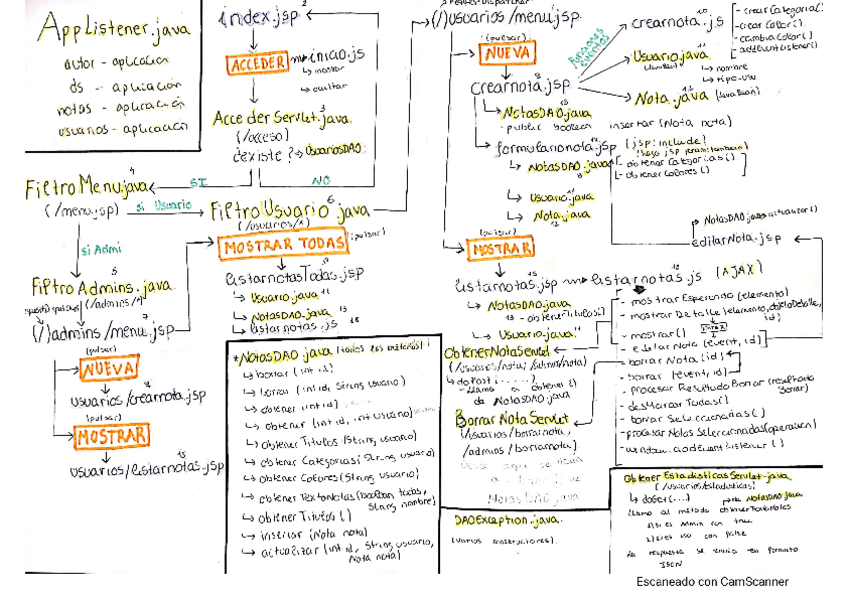 AppListener.java
autor - aplicacion
ds - aplicación
notas - aplicación
usuarios - aplicacion
index.jsp
ACCEDER
inicio.js
↳ mostrar
↳ ocultar
AccederServlet.java
(/acceso)
¿existe? → UsuariosDAO
SI
NO
FiltroMenu.java
(/menu.jsp)
si Usuario
FiltroUsuario.java
(/usuarios/*)
si Admi
FiltroAdmins.java
(/admins/*)
(/)admins/menu.jsp
(pulsar)
NUEVA
usuarios/crearnota.jsp
(pulsar)
MOSTRAR
usuarios/listarnotas.jsp
MOSTRAR TODAS
(pulsar)
listarnotasTodas.jsp
↳ Usuario.java
↳ NotasDAO.java
↳ listarnotas.js
*NotasDAO.java (todos los métodos):
↳ borrar (int id)
↳ borrar (int id, String usuario)
↳ obtener (int id)
↳ obtener (int id, int usuario)
↳ obtener Titulos (String usuario)
↳ obtener Categorias (String usuario)
↳ obtener Colores (String usuario)
↳ obtener TextoNotas (boolean todas, String nombre)
↳ obtener Titulos ()
↳ insertar (Nota nota)
↳ actualizar (int id, String usuario, Nota nota)
(/)usuarios/menu.jsp
(pulsar)
NUEVA
crearnota.jsp
↳ NotasDAO.java
- public boolean insertar (Nota nota)
formularionota.jsp (jsp:include)
↳ NotasDAO.java
- obtener Categorias()
- obtener Colores()
↳ Usuario.java
↳ Nota.java
crearnota.js
- crearCategoria()
- crear Color()
- cambiaColor()
- addEventListener()
Usuario.java
↳ nombre
↳ tipo-usu
Nota.java (JavaBean)
(pulsar)
MOSTRAR
listarnotas.jsp
listarnotas.js (AJAX)
↳ NotasDAO.java
- obtenerTitulos()
↳ Usuario.java
NotasDAO.java actualizar()
editarNota.jsp
- mostrar Esperando (elemento)
- mostrar Detalle (elemento, objetoDetalle, id)
- mostrar()
- editar Nota (event, id)
- borrar Nota (id)
- borrar (event, id)
- procesar Resultado Borrar (resultado borrar)
- desMarcar Todas()
- borrar Seleccionadas()
- procesar Notas Seleccionadas (operacion)
- window.addEventListener()
ObtenerNotaServlet
(/usuarios/nota, /admin/nota)
↳ doPost (.....)
- llama a obtener()
de NotasDAO.java
BorrarNotaServlet
(/usuarios/borrarnota,
/admins/borrarnota)
NotasDAO.java
DAOException.java.
(varios constructores).
Obtener Estadísticas Servlet.java
(/usuarios/estadisticas)
↳ doGet (...)
de NotasDAO.java
Llama al método obtenerTextoNotas
si es Admin con true
con false
La respuesta se envia en formato
JSON
Escaneado con CamScanner